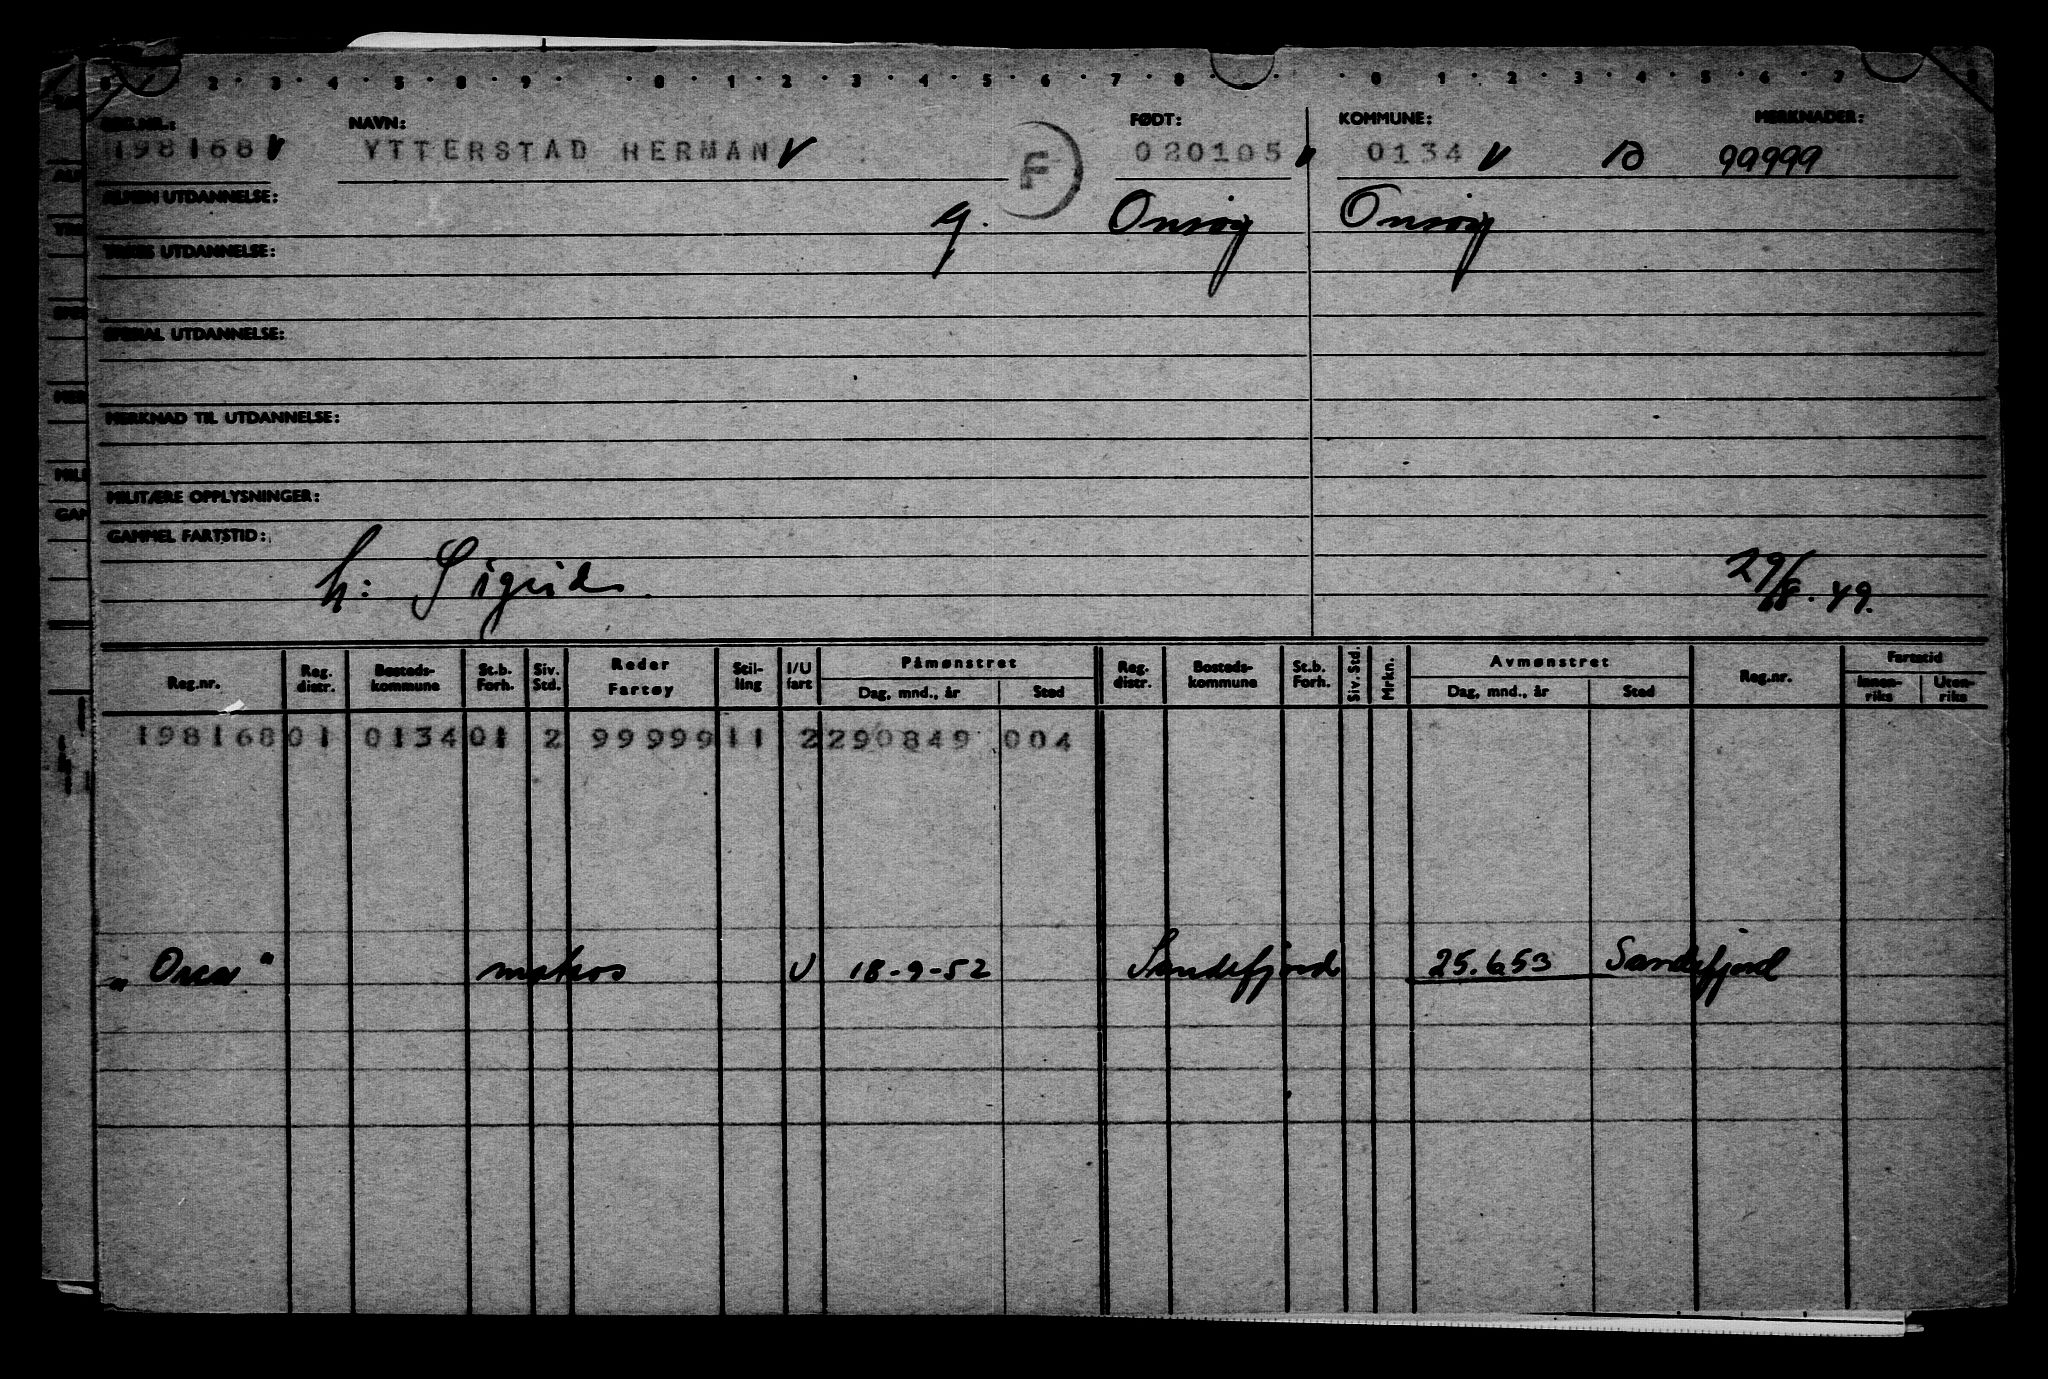 0 · 2 · 3 · 4 · 5 · 8 · 9 · · 8 · 1 · 2 · 3 · 4 · 5 · 6 · 7 · 8 · · 0 · 1 · 2 · 3 · 4 · 5 · 6 · 7 · 8
REG.NR.: NAVN: FØDT: KOMMUNE: MERKNADER:
198168 V YTTERSTAD HERMAN V F 020105 0134 V 99999
ALMEN UTDANNELSE: g. Onsøy Onsøy
YRKES UTDANNELSE:
SPESIAL UTDANNELSE:
MERKNAD TIL UTDANNELSE:
MILITÆRE OPPLYSNINGER:
GAMMEL FARTSTID:
h: Sigrid. 29/8.49.
Reg.nr. Reg. distr. Bosteds-kommune St.b. Forh. Siv. Std. Reder Fartøy Stil-ling I/U fart Påmønstret Dag, mnd., år Sted Reg. distr. Bosteds-kommune St.b. Forh. Siv. Std. Mrkn. Avmønstret Dag, mnd., år Sted Reg.nr. Fartstid Innen-riks Uten-riks
198168 01 0134 01 2 99999 11 2 290849 004
„Orca" matros U 18-9-52 Sandefjord 25.6.53 Sandefjord